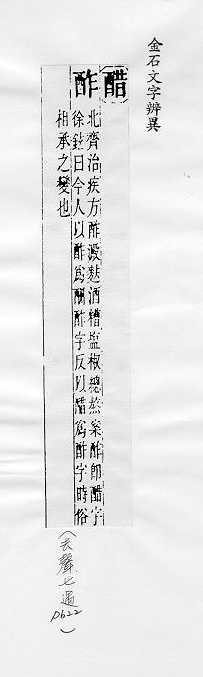 金石文字辨異
醋
酢
北齊治疾方酢澱麩酒糟塩椒總熬案酢即醋字
徐鉉曰今人以酢爲酬酢字反以醋爲酢字時俗
相承之變也
(去聲七遇 p622)